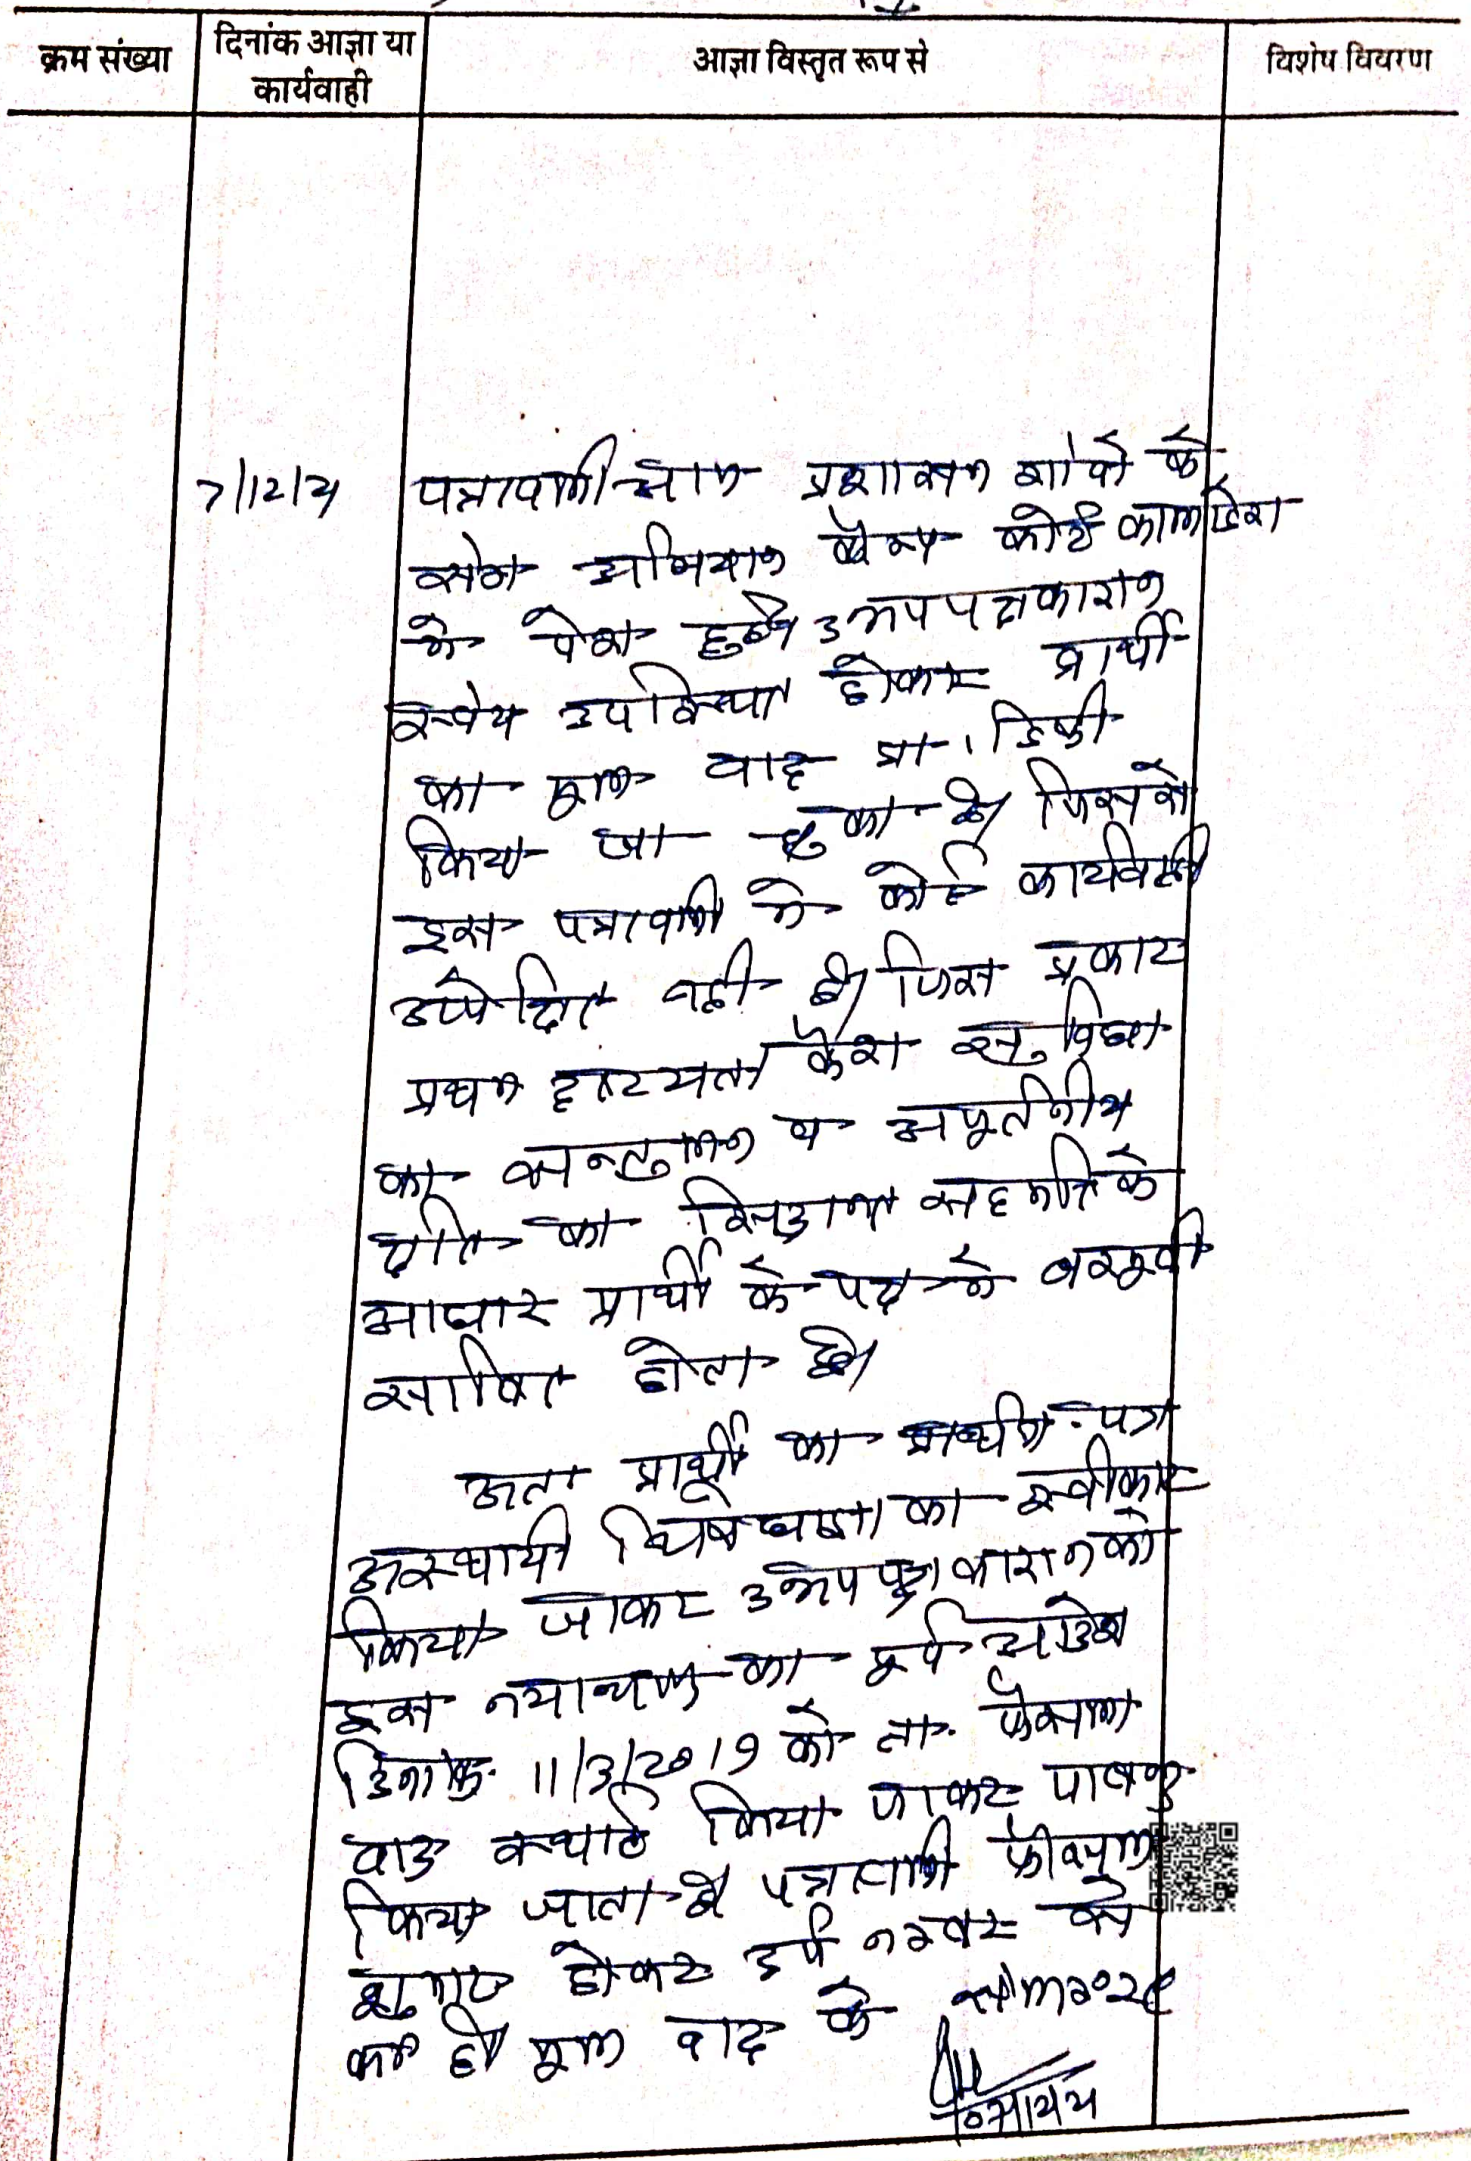 क्रम संख्या
दिनांक आज्ञा या
कार्यवाही
आज्ञा विस्तृत रूप से
विशेष विवरण
7/12/21
पत्रावली आज प्रशासन गांवो के
संग अभियान कैम्प कोर्ट
मे पेश हुई उभयपक्षकारान
स्वंय उपस्थित होकर प्रार्थी
का मूल वाद प्रा. डिक्री
किया जा चुका है। जिससे
इस पत्रावली मे कोई कार्यवाही
अपेक्षित नही है। जिस प्रकार
प्रथम दृष्टयता केश सुविधा
का सन्तुलन व अपूर्तनीय
क्षति का सिद्वान्त सहमति के
आधार प्रार्थी के पक्ष मे बखूबी
साबित होता है।
अतः प्रार्थी का प्रार्थना-पत्र
अस्थायी निषेधाज्ञा का स्वीकार
किया जाकर उभयपक्षकारान को
इस न्यायालय का पूर्व आदेश
दिनांक 11/3/2019 को ता. फैसला
वाद कन्फर्म किया जाकर पाबन्द
किया जाता है पत्रावली फैसल
शुमार होकर दर्ज नम्बर से
कम हो मूल वाद के